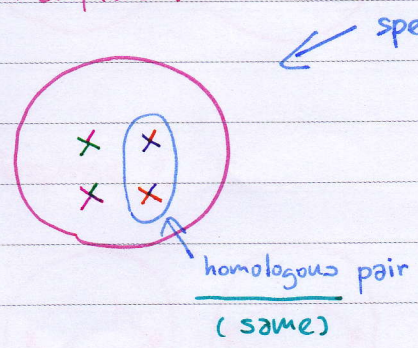 homologous pair
(same)